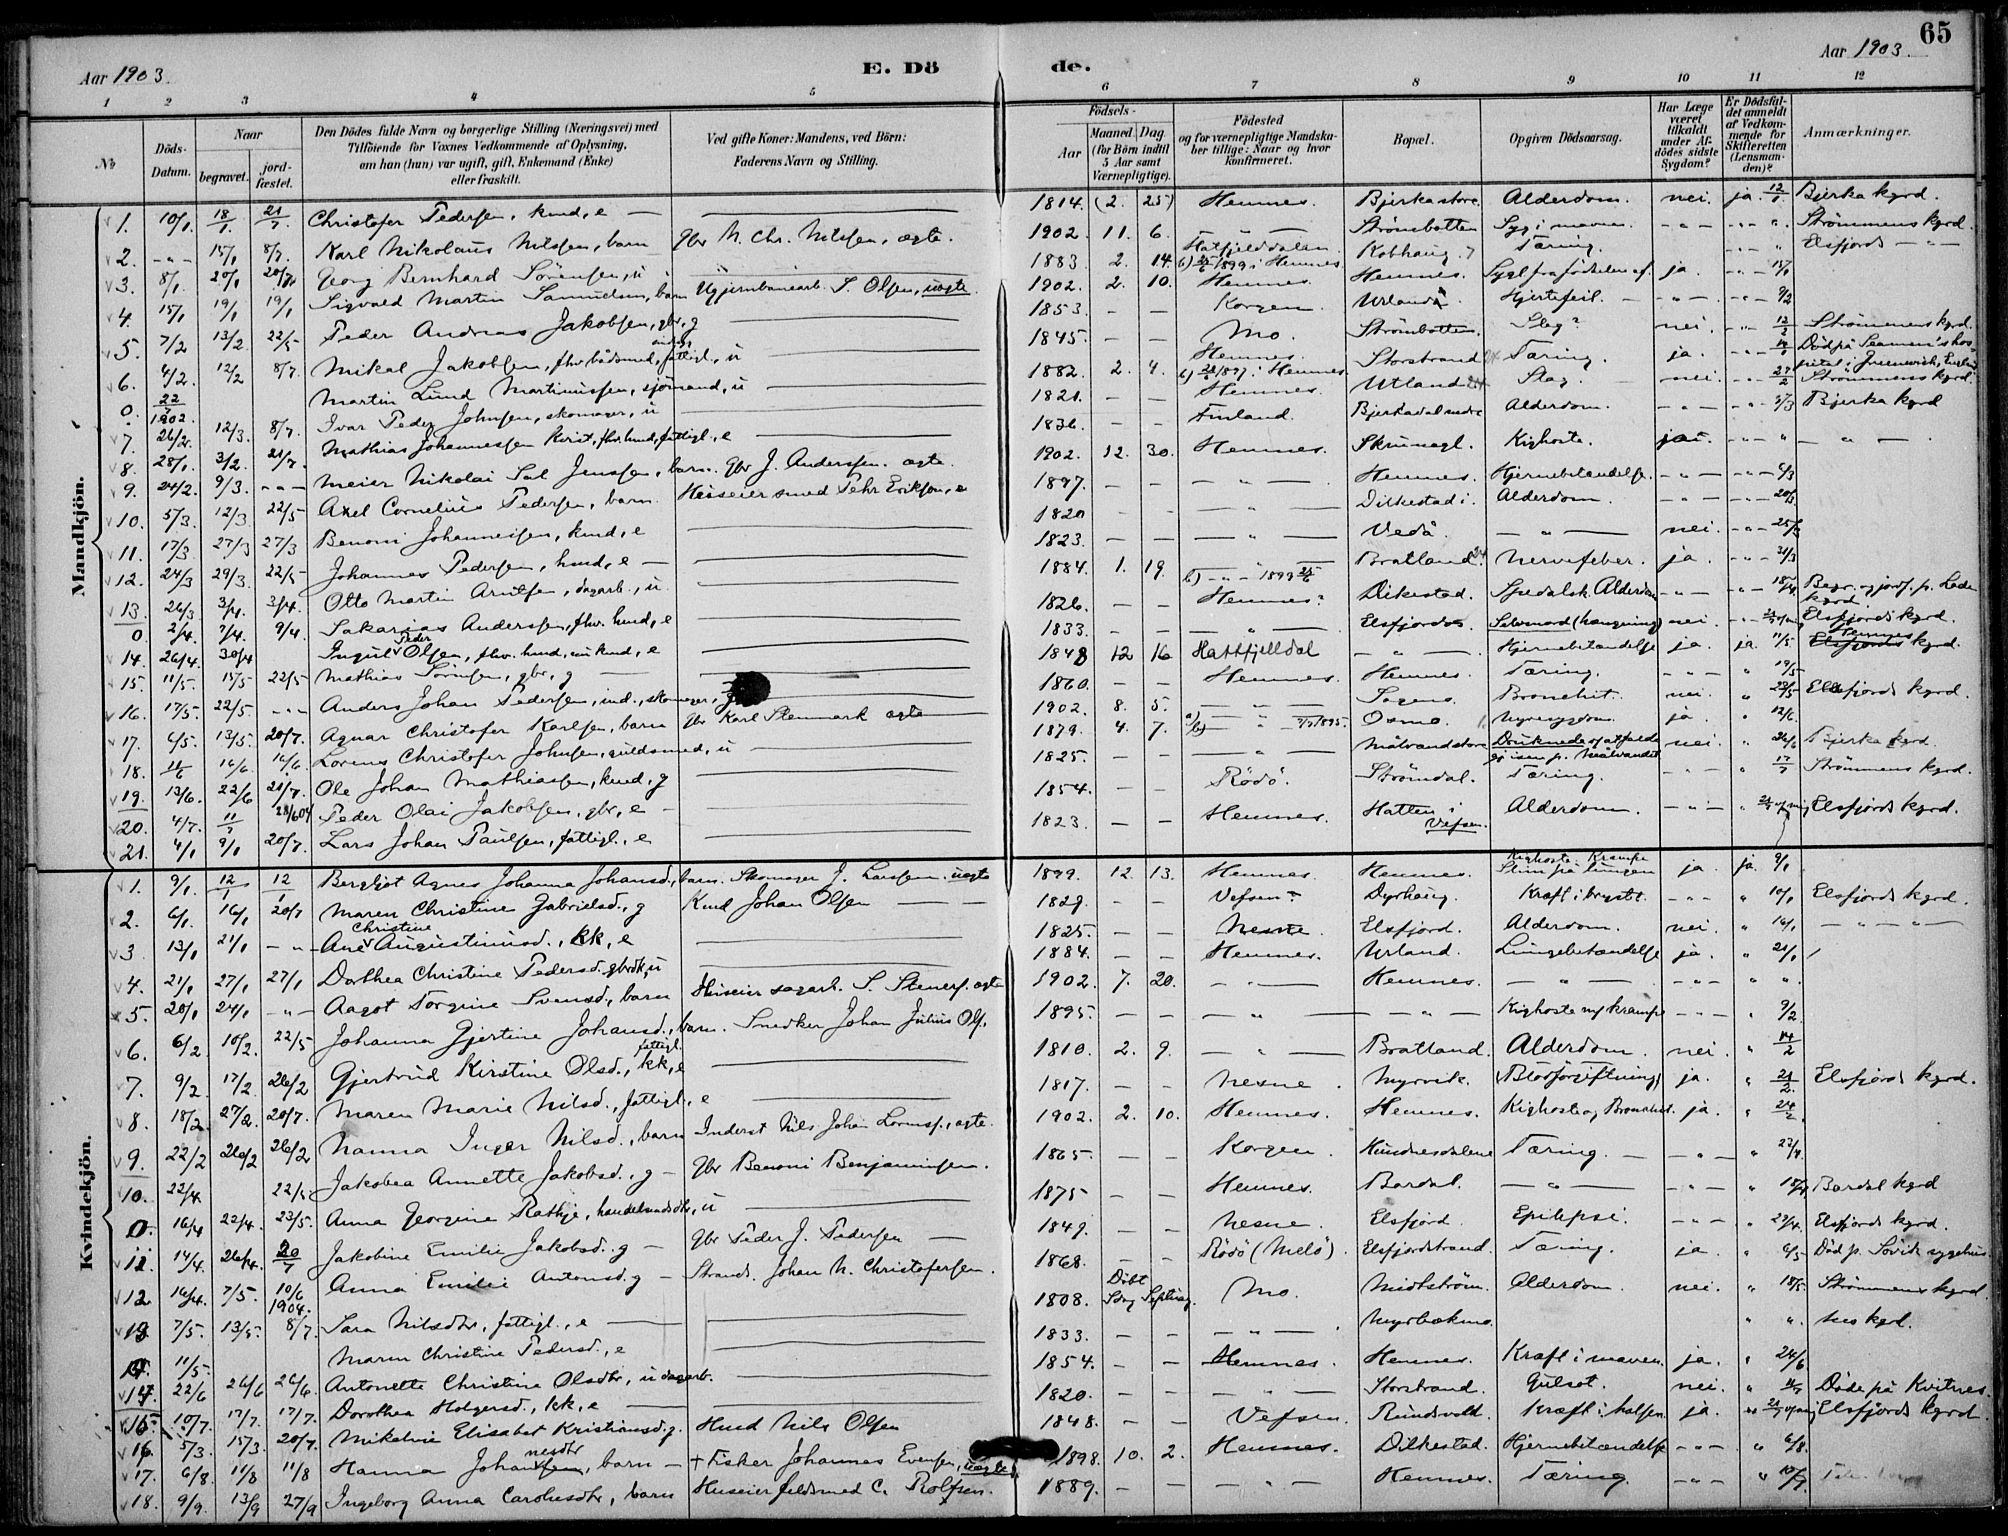 65
Aar 1903. E. Dö de. Aar 1903.
1 2 3 4 5 6 7 8 9 10 11 12
No
Döds-Datum.
Naar begravet. jord-fæstet.
Den Dödes fulde Navn og borgerlige Stilling (Næringsvei) med Tilföiende for Voxnes Vedkommende af Oplysning, om han (hun) var ugift, gift, Enkemand (Enke) eller fraskilt.
Ved gifte Koner: Mandens, ved Börn: Faderens Navn og Stilling.
Födsels- Aar Maaned Dag (for Börn indtil 5 Aar samt Værnepligtige).
Födested og for værnepligtige Mandskaber tillige: Naar og hvor konfirmeret.
Bopæl.
Opgiven Dödsaarsag.
Har Læge været tilkaldt under Afdödes sidste Sygdom?
Er Dödsfaldet anmeldt af Vedkommende for Skifteretten (Lensmanden)?
Anmærkninger.
Mandkjön.
1. 10/1 18/1 21/7 Christofer Pedersen, kmd, e — 1814. (2. 25) Hemnes. Bjerka store Alderdom. nei. ja. 12/1 Bjerka kgrd.
2. -"- 15/1 8/7. Karl Nikolaus Nilssen, barn Gbr N. Chr. Nilssen, ægte. 1902. 11. 6. — " — Strømbotten Syg i maven. -"- -"- ". Strømmens kgrd.
3. 8/1 20/1 20/7 Georg Bernhard Sörensen, u 1883. 2. 14. Hatfjelddalen b) 1899 i Hemnes Kobhaug Tæring. -"- " Elsfjords -"-
4. 15/1 19/1 19/1 Sigvald Martin Samuelsen, barn Ugjernbanearb. S. Olsen, uægte. 1902. 2. 10. Hemnes. Hemnes. Sygl fra födselen af. ja. -"- 15/1
5. 7/2 13/2 22/5 Peder Andreas Jakobsen, gbr, g 1853. — — Korgen Urlandå Hjertefeil. — -"- -"- 9/2
6. 4/2. 12/2 8/7. Mikal Jakobsen, fhv bådsmed, fattigl., u 1845. — — Mo. Strömbotten. Slag? nei. -"- 12/2 Strömmens kgrd.
0. 22/ 1902. Martin Lund Martinussen, sjömand, u 1882. 2. 4. Hemnes. b) 1897 i Hemnes Storstrand Tæring. ja. -"- Död på Seamen's hospital i Greenwich, England
7. 26/2 12/3. 8/7. Ivar Peder Johnsen, skomager, u 1821. — — Hemnes. Utland Slag. — nei. -"- 27/2 Strömmens kgrd.
8. 28/1. 3/2. 21/7. Mathias Johannessen Kvist, fhv. hmd, fattigl., e 1836. — — Finland. Bjerkadal nedre Alderdom. -"- -"- 5/3 Bjerka kgrd
9. 24/2. 9/3. -"- Meier Nikolai Sal Jenssen, barn. Gbr J. Andersen. ægte. 1902. 12. 30. Hemnes. Kighoste. -"- " — " —
10. 5/3. 12/3. 22/5 Axel Cornelius Pedersen, barn. Huseier smed Pehr Erikson, e 1897. — — — " — Hemnes. Hjernebetændelse. -"- -"- 6/3
11. 17/3. 27/3 27/3 Benoni Johannessen, kmd, e 1820 — — — " — Dilkestad i. Alderdom. -"- -"- 20/3
12. 24/3 29/3. 22/5 Johannes Pedersen, hmd, e — 1823. — — — " — Vedå. — " — nei. -"- 25/3
13. 26/3 3/4. 3/4. Otto Martin Arntsen, dagarb., u. 1884. 1. 19. b) -"- 1899 Bratland Nervefeber. ja. -"- 31/3
0. 2/4. 7/4. 9/4. Sakarias Andersen, fhv. hmd, e 1826. — — Hemnes? Dilkestad. Spedalsk. Alderdom -"- -"- Begr. og jordf. p. kgrd
14. 26/4. 30/4 Ingul Peder Olsen, fhv. hmd, nu kmd, e 1833. — — — " — Elsfjorden Selvmord (hængning) nei. -"- Elsfjords kgrd.
15. 11/5. 15/5 22/5 Mathias Sörnsen, gbr, g 1848 12 16 Hattfjelldal — " — Hjernebetændelse ja. ja. 11/5 Hemnes kgrd.
16. 17/5. 22/5. -"- Anders Johan Pedersen, ind., skomager, g 1860. — — Hemnes. Hemnes. Tæring. -"- " 19/5
17. 6/5. 13/5. 20/7. Agnar Christofer Karlsen, barn Gbr Karl Stenmark ægte 1902. 8. 5. — " — Bronchit. nei. " Elsfjords kgrd.
18. 16/6. 16/6. Lorens Christofer Johnsen, guldsmed, u 1879. 4. 7. — " — 1895. Osmo. Nyresygdom. ja. " 12/6.
19. 13/6. 22/6 21/7. Ole Johan Mathiassen, kmd, g 1825. — — — " — Målvand store Druknede nei. " 26/6 Bjerka kgrd.
20. 4/7. 11/7 28/604 Peder Olai Jakobsen, gbr, e — 1854. — — Rödö. Strömdal. Tæring. — " — " 17/7 Strömmens kgrd.
21. 4/1 9/1 20/7. Lars Johan Paulsen, fattigl., e 1823. — — Hemnes. Hatten i Vefsen. Alderdom. -"- " Elsfjords kgrd.
Kvindekjön.
1. 9/1. 12/1 12/1 Bergljot Agnes Johanna Johansd., barn. Skomager J. Larssen. uægte 1899. 12. 13. Hemnes. Hemnes. Kighoste Krampe Slim på lungen ja. ja. 9/1
2. 6/1. 16/1 20/7 Maren Christine Gabrielsd., g Kmd Johan Olsen — — 1829. — — Vefsen? Dyrhaug. Kræft i bryst. -"- " 10/1 Elsfjords kgrd.
3. 13/1 21/1. -"- Ane Christine Augustinusd., kk, e 1825. — — Nesne Elsfjord. Alderdom. nei. " 16/1 — " — " —
4. 21/1 27/1 27/1 Dorthea Christine Pedersd. gbrdtr, u 1884. — — Hemnes. Urland. Lungebetændelse ja. " 21/1
5. 20/1 24/1 -"- Aagot Torgine Svensd., barn Huseier sagarb. S. Stenerf. ægte 1902. 7. 20. — " — Hemnes. — " — -"- " ".
6. 6/2. 10/2. 22/5 Johanna Gjertine Johansd., barn. Snedker Johan Julius Ols. 1895. — — — " — — " — Kighoste m/ krampe -"- " 9/2
7. 9/2 17/2. 26/2 Gjertrud Kirstine Olsd., fattigl. kk, e 1810. 2. 9. — " — Bratland. Alderdom. nei. " 14/2
8. 18/2. 27/2. 20/7. Maren Marie Nilsd., fattigl., e 1817. — — Nesne. Myrvik. (Blodforgiftning) ja. " 21/2 Elsfjords kgrd.
9. 22/2 26/2 26/2 Nanna Inger Nilsd., barn Inderst Nils Johan Lorensf., ægte. 1902. 2. 10. Hemnes. Hemnes. Kighoste og Bronchit. ja. " 24/2
10. 22/4. 22/5 Jakobea Annette Jakobsd., g — Gbr Benoni Benjaminsen. 1865. — — Korgen Tæring. — -"- " 27/4.
0. 16/4 22/4. 23/5. Anna Georgine Rathje, handelsmdsdtr, u 1875. — — Hemnes. Bardal. — " — -"- " 18/4 Bardal kgrd
11. 14/4. 26/4. 20/7 Jakobine Emilie Jakobsd., g — Gbr Peder J. Pedersen — 1849. — — Nesne. Elsfjord. Epilepsi. -"- " 29/4. Elsfjords kgrd.
12 16/4. 7/5. 10/6 1904. Anna Emilie Antonsd., g — Strands. Johan N. Christofersen. 1868. — — Rödö (Melö). Elsfjordstrand. Tæring. ja. " 6/5 Död p. sygehus.
13 7/5. 13/5. 8/7. Sara Nilsdtr, fattigl., e — 1808. Döbt Mo. Midtström. Alderdom. nei. " 18/5. Strömmens kgrd.
11/5. Maren Christine Pedersd., e 1833. — — — " — Myrbakmo. " ". kgrd.
14. 22/6 26/6 26/6. Antonette Christine Olsdtr, u dagarb. 1854. — — Hemnes. Hemnes. Kræft i maven. ja. " 24/6
15. 10/7. 17/7. 17/7. Dorothea Holgersd., kk, e — 1820. — — — " — Storstrand. Gulsot. nei. " Döde på Kvitnes.
16 5/3. 15/3. 20/7. Mikaline Elisabet Kristiansd., g. Hmd Nils Olsen 1848. — — Vefsen. Kræft i halsen ja. " Elsfjords kgrd.
17. 6/8. 11/8 11/8 Hanna Johannesdtr, barn — + Fisker Johannes Evensen, uægte 1898. 10. 2. Hemnes. Dilkestad. Hjernebetændelse -"- " 6/8.
18. 9/9. 13/9 27/9 Ingeborg Anna Carolusdtr, barn Huseier feldsmed C. Rolfsen. 1889. — — — " — Hemnes. Tæring. -"- " 10/9.